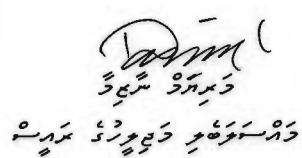 މަރިޔަމް ނާޒިމާ
މައްސަލަބެލި މަޖިލީހުގެ ރައީސް